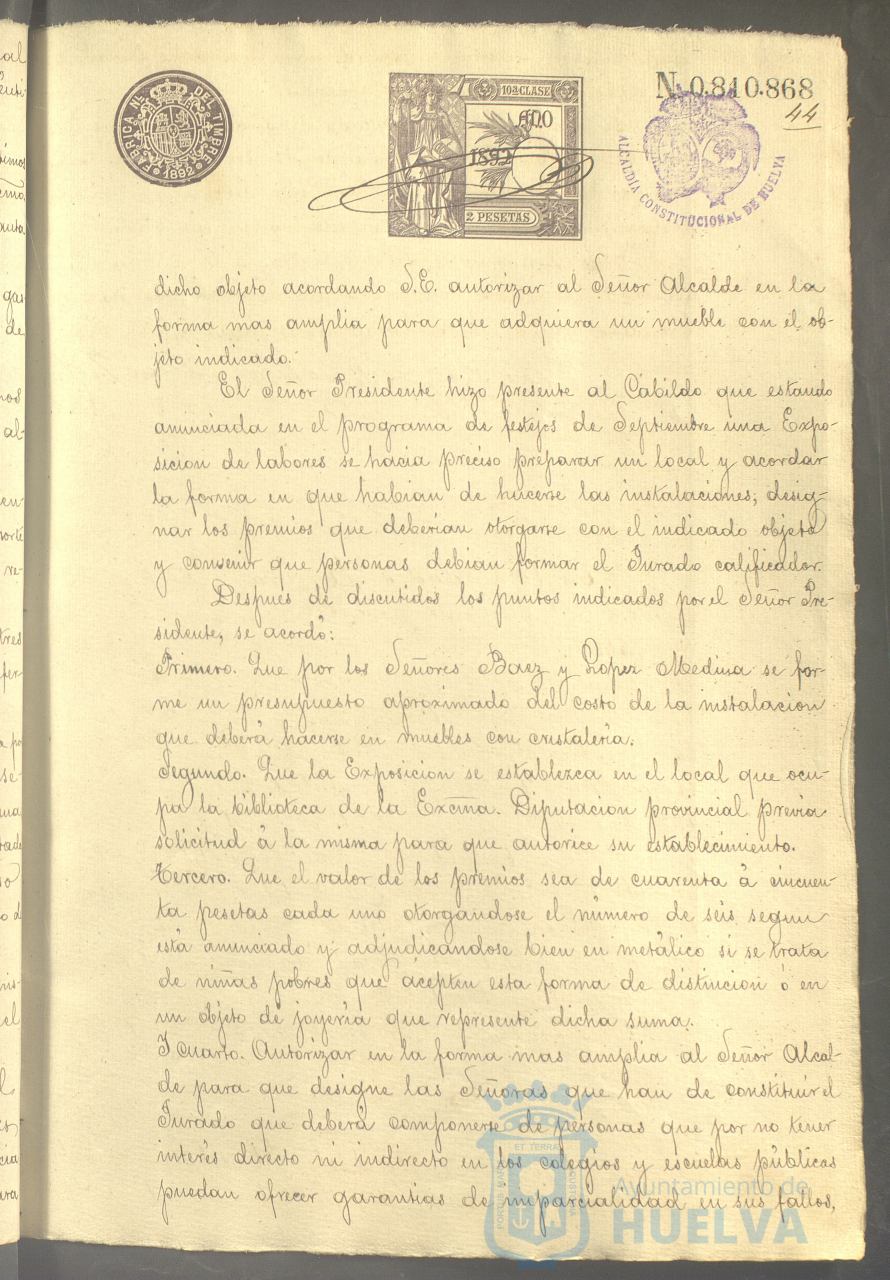 FABRICA NL. DEL TIMBRE
1892
10ª CLASE
AÑO
1892
2 PESETAS
N. 0.810.868
44
ALCALDIA CONSTITUCIONAL DE HUELVA
dicho objeto acordando S.E. autorizar al Señor Alcalde en la
forma mas amplia para que adquiera un mueble con el ob-
jeto indicado.
El Señor Presidente hizo presente al Cabildo que estando
anunciada en el programa de festejos de Septiembre una Expo-
sicion de labores se hacia preciso preparar un local y acordar
la forma en que habian de hacerse las instalaciones; desig-
nar los premios que deberian otorgarse con el indicado objeto
y convenir que personas debian formar el Jurado calificador.
Despues de discutidos los puntos indicados por el Señor Pre-
sidente, se acordó:
Primero. Que por los Señores Baez y Lopez Medina se for-
me un presupuesto aproximado del costo de la instalacion
que deberá hacerse en muebles con cristaleria.
Segundo. Que la Exposicion se establezca en el local que ocu-
pa la biblioteca de la Excma. Diputacion provincial previa
solicitud á la misma para que autorice su establecimiento.
Tercero. Que el valor de los premios sea de cuarenta á cincuen-
ta pesetas cada uno otorgandose el número de séis segun
está anunciado y adjudicandose bien en metálico si se trata
de niñas pobres que acepten esta forma de distincion ó en
un objeto de joyeria que represente dicha suma.
I cuarto. Autorizar en la forma mas amplia al Señor Alcal-
de para que designe las Señoras que han de constituir el
Jurado que deberá componerse de personas que por no tener
interés directo ni indirecto en los colegios y escuelas públicas
puedan ofrecer garantias de imparcialidad en sus fallos,
Ayuntamiento de
HUELVA